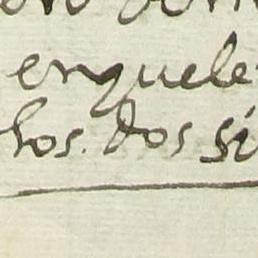 enquele
los. dos si